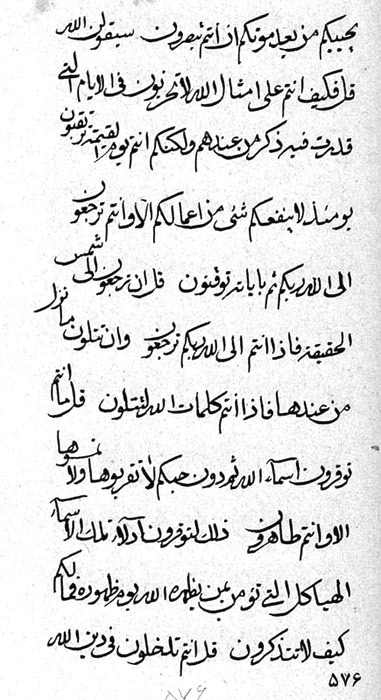 يحييكم من بعد موتكم ان أنتم تبصرون سيقولن الله
قل فكيف انتم على امثال الله لا تحزنون في الايام التي
قدرت فيه ذكر من عندهم ولكنكم انتم يوم القيمة ترتقبون
يومئذ لا ينفعكم شئ من اعمالكم الا وأنتم ترجعون
الى الله ربكم ثم باياته توقنون قل ان ترجعون الى شمس
الحقيقة فاذا انتم الى الله ربكم ترجعون وان تتلون ما نزل
من عندها فاذا انتم كلمات الله لتتلون قل ما انتم
توقرون اسماء الله ثم دون حبكم لا تقربوها ولا تمسوها
الا وانتم طاهرون ذلك لتوقرون ادلاء تلك الاسماء
الهياكل التي تؤمن بمن يظهره الله يوم ظهوره فما لكم
كيف لا تتذكرون قل انتم تدخلون في دين الله
٥٧٦
٥٧٦